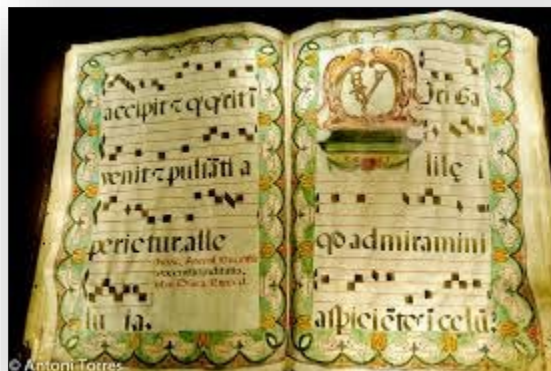 accipit ⁊ q̄ q̄rit ī
venit ⁊ pulsāti a
perietur. alle
lu ia.
V
Iri Ga
lilę i
qđ admiramini
aſpiciētes ī celū?
© Antoni Torres